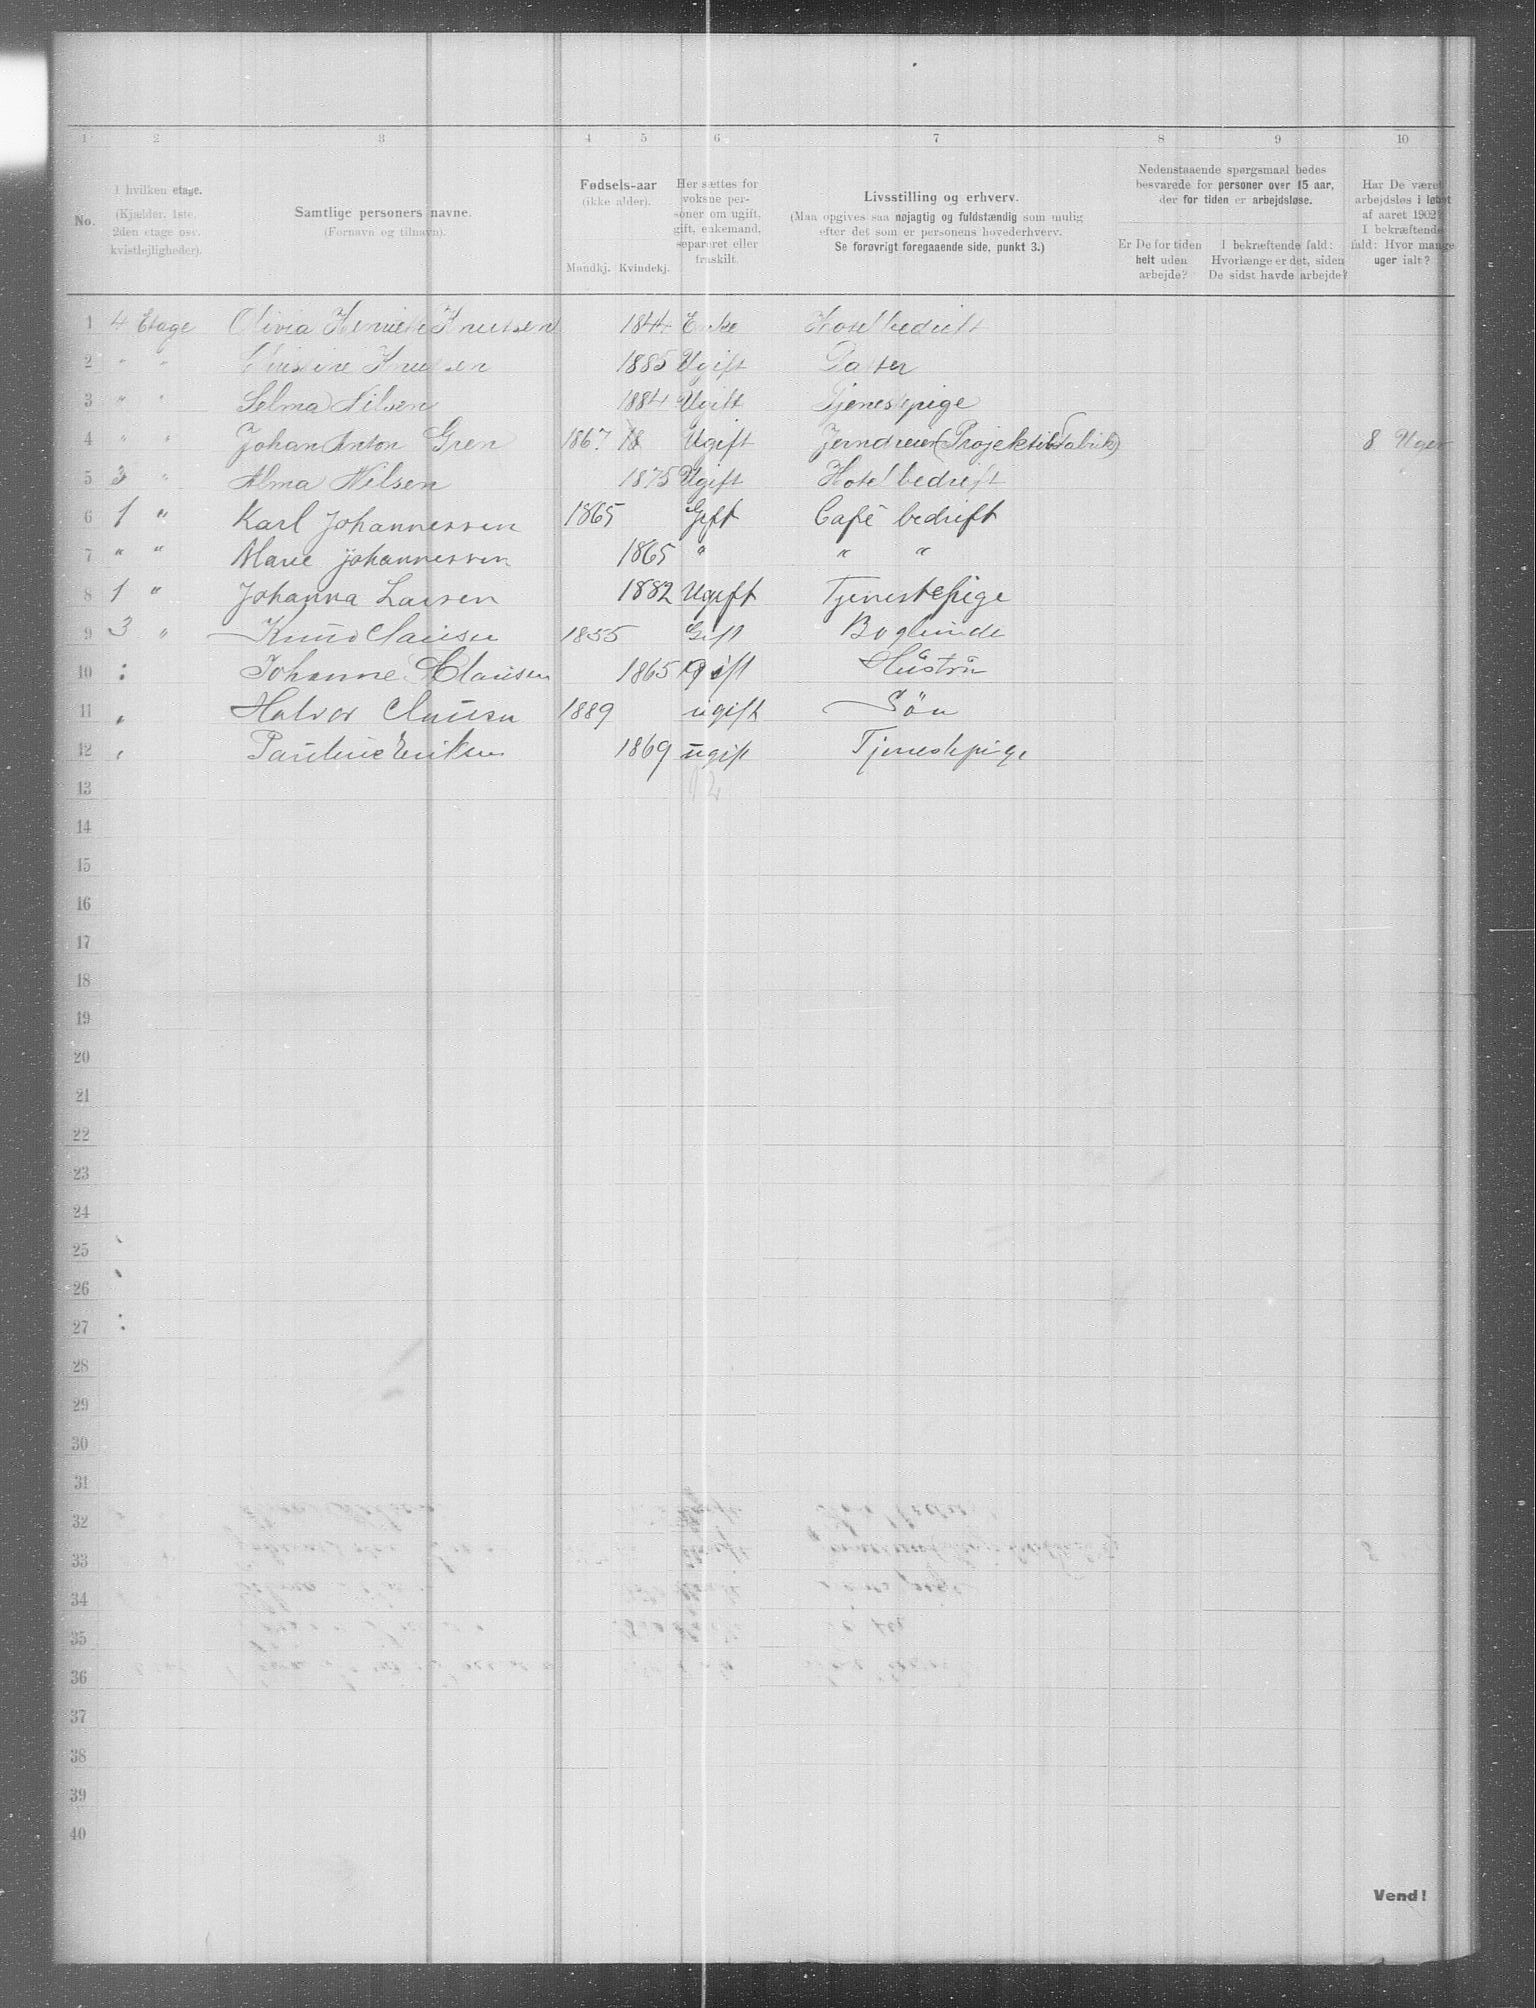 1 2 3 4 5 6 7 8 9 10
No.
I hvilken etage.
(Kjælder, 1ste,
2den etage osv.
kvistlejligheder).
Samtlige personers navne.
(Fornavn og tilnavn).
Fødsels-aar
(ikke alder).
Mandkj. Kvindekj.
Her sættes for
voksne per-
soner om ugift,
gift, enkemand,
separeret eller
fraskilt.
Livsstilling og erhverv.
(Maa opgives saa nøjagtig og fuldstændig som mulig
efter det som er personens hovederhverv.
Se forøvrigt foregaaende side, punkt 3.)
Nedenstaaende spørgsmaal bedes
besvarede for personer over 15 aar,
der for tiden er arbejdsløse.
Er De for tiden
helt uden
arbejde?
I bekræftende fald:
Hvorlænge er det, siden
De sidst havde arbejde?
Har De været
arbejdsløs i løbet
af aaret 1902?
I bekræftende
fald: Hvor mange
uger ialt?
1 4 Etage Olivia Henriette Knutsen 1844 Enke Hotelbedrift
2 " " Christine Knutsen 1885 Ugift Datter
3 " " Selma Nilsen 1884 Ugift Tjenestepige
4 " " Johan Anton Gren 1867. 18 Ugift Jerndreier (Projektilfabrik) 8 Uger
5 3 " Alma Nilsen 1875 Ugift Hotelbedrift
6 1 " Karl Johannessen 1865 Gift Café bedrift
7 " " Marie Johannessen 1865 " " "
8 1 " Johanna Larsen 1882 Ugift Tjenestepige
9 3 " Knud Clausen 1855 Gift Boghandl
10 : Johanne Clausen 1865 Gift Hustru
11 " Halvor Clausen 1889 ugift Søn
12 " Pauline Eriksen 1869 ugift Tjenestepige
13 12
14
15
16
17
18
19
20
21
22
23
24
25
26
27
28
29
30
31
32
33
34
35
36
37
38
39
40
Vend!